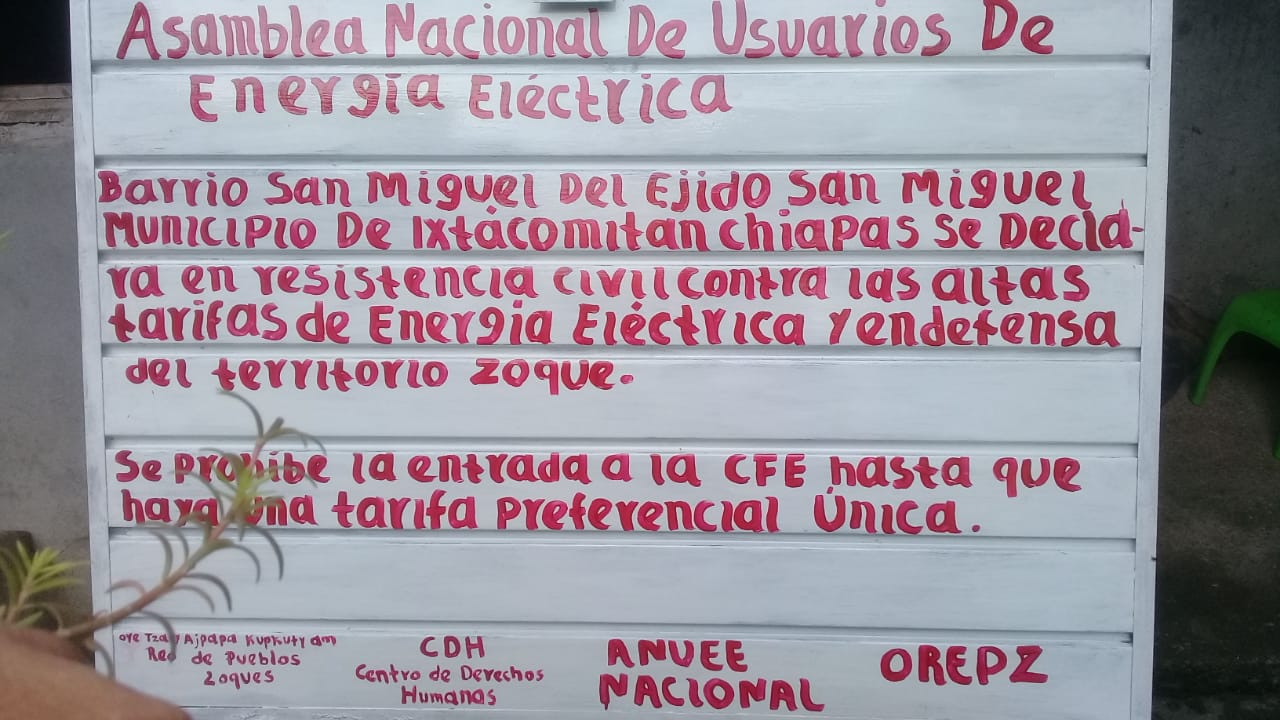 Asamblea Nacional De Usuarios De
Energía Eléctrica
Barrio San Miguel Del Ejido San Miguel
Municipio De Ixtacomitan Chiapas Se Decla-
ra en resistencia civil contra las altas
tarifas de Energia Eléctrica Y en defensa
del territorio Zoque.
Se prohibe la entrada a la CFE hasta que
haya una tarifa Preferencial Única.
CDH
ANUEE
OREPZ
Red de Pueblos
Centro de Derechos
NACIONAL
Zoques
Humanos